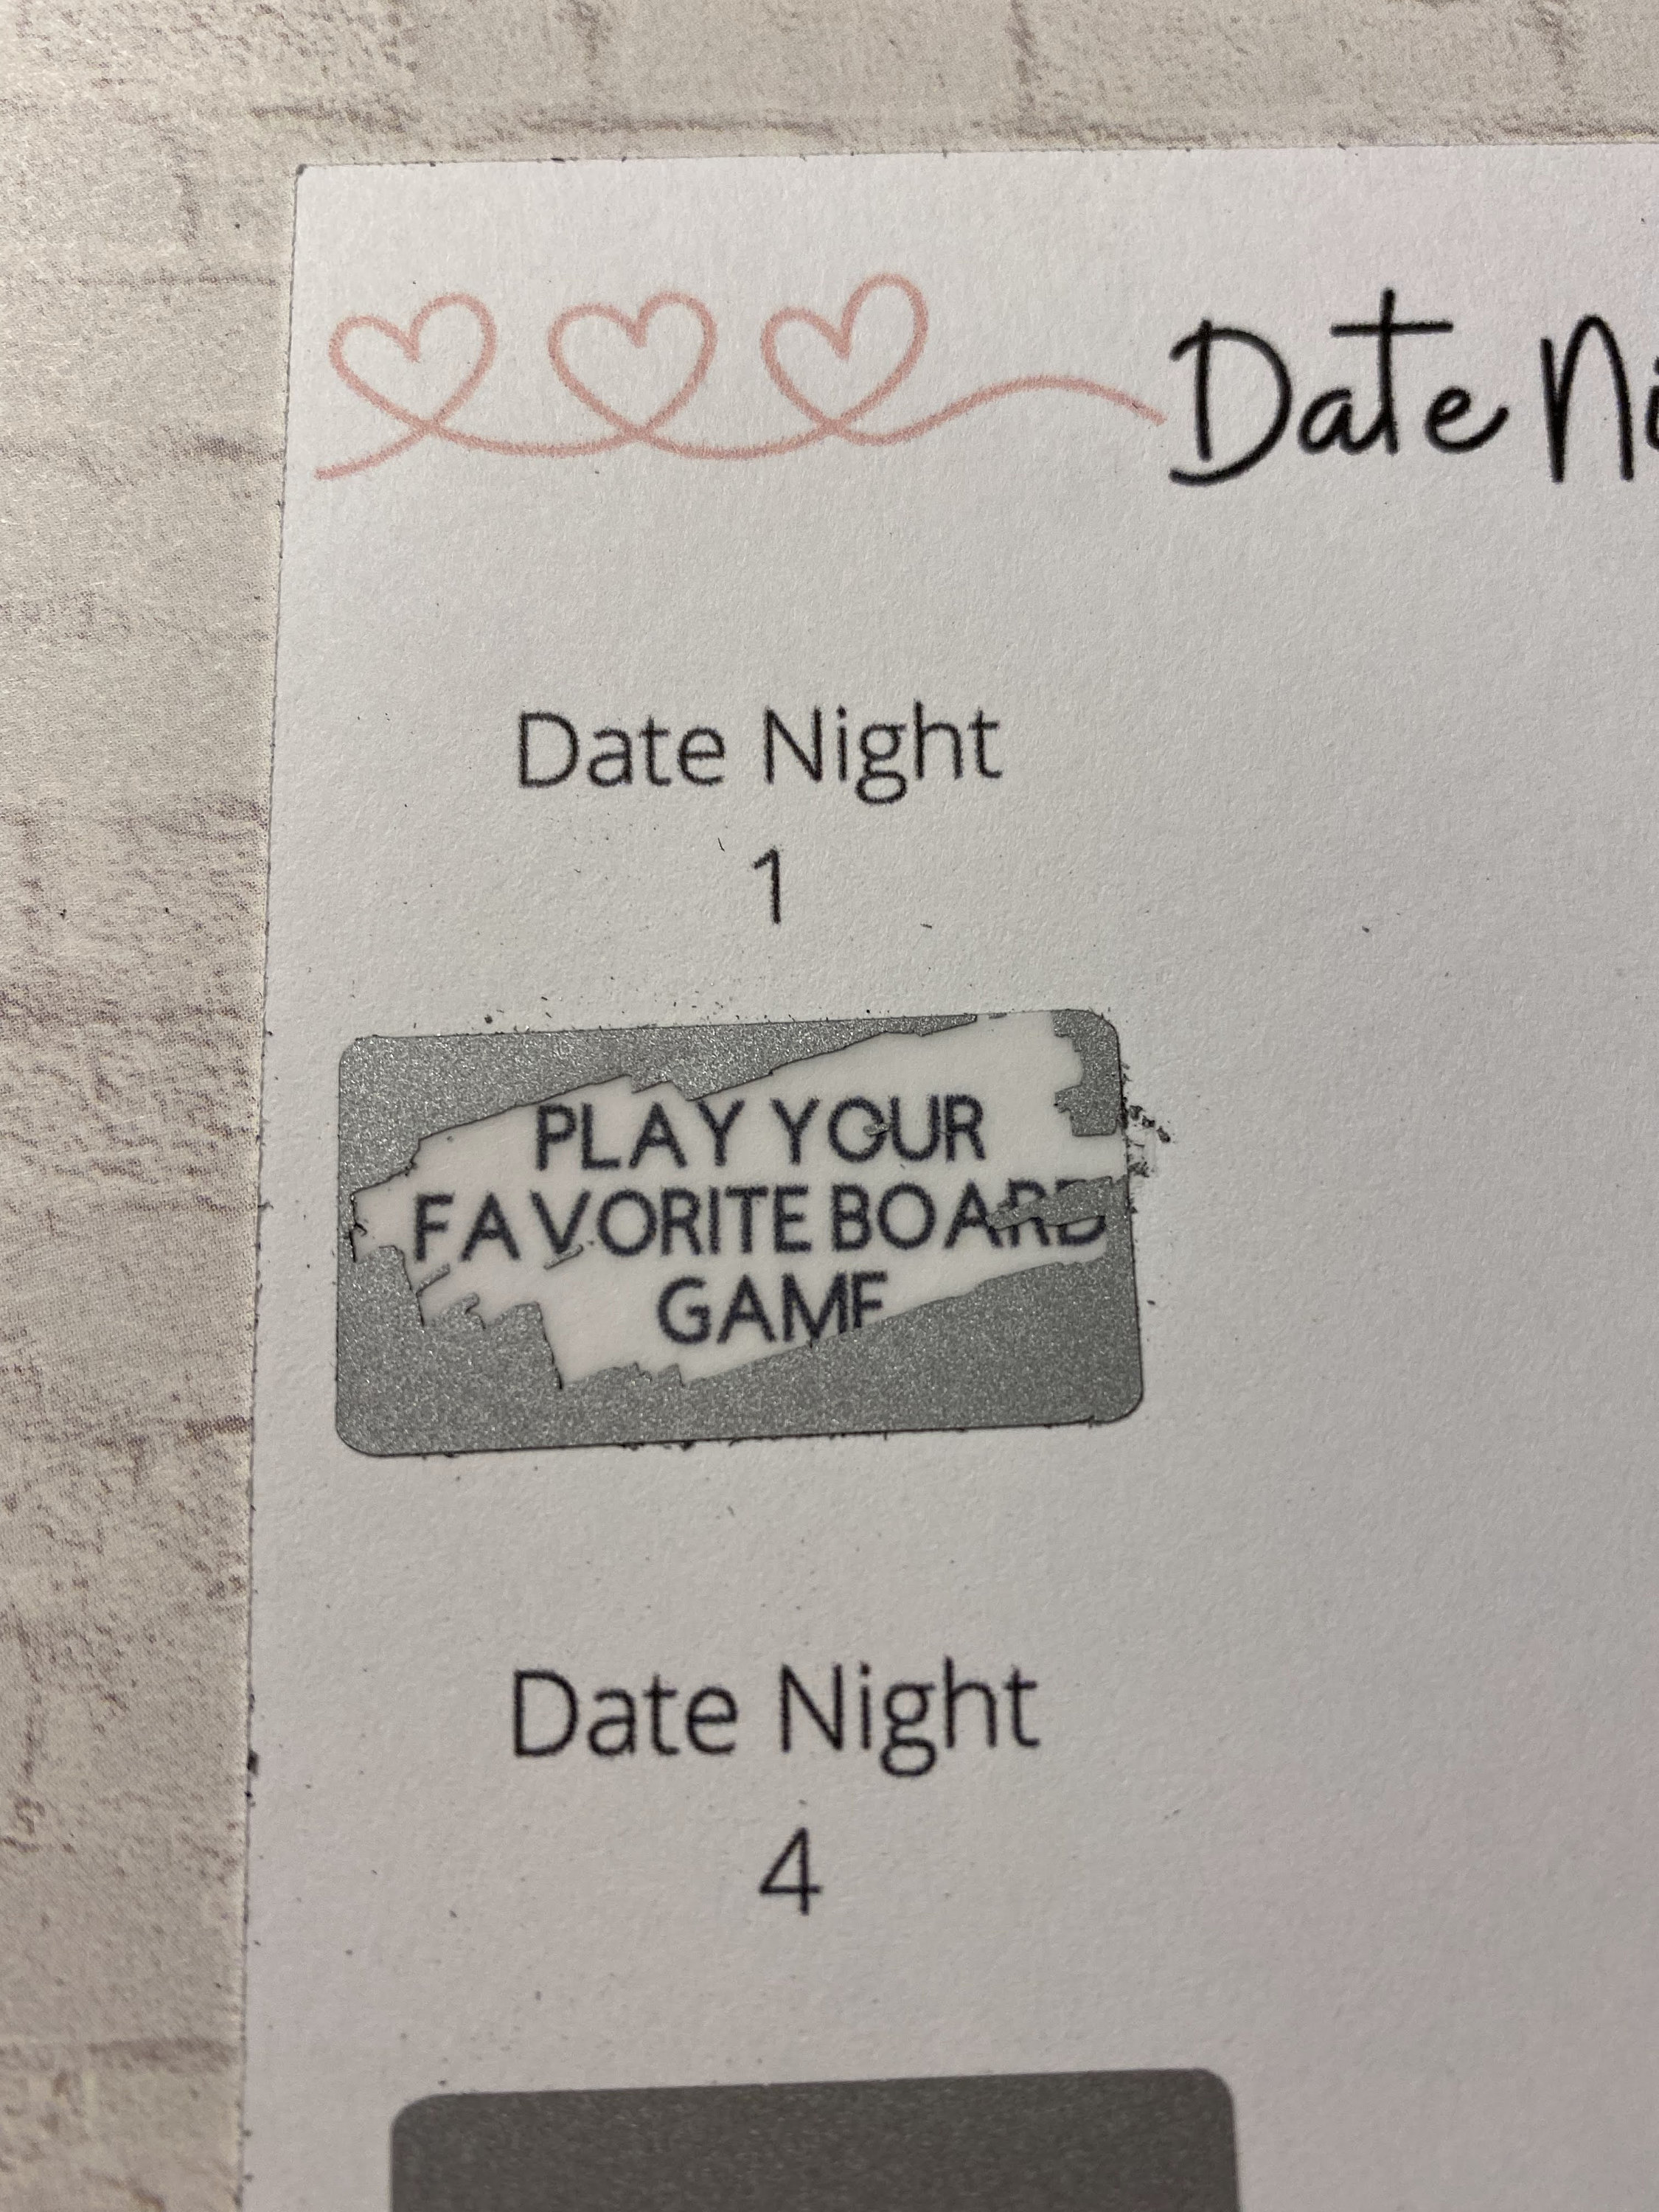 Date Ni
Date Night
1
PLAY YOUR
FAVORITE BOARD
GAME
Date Night
4